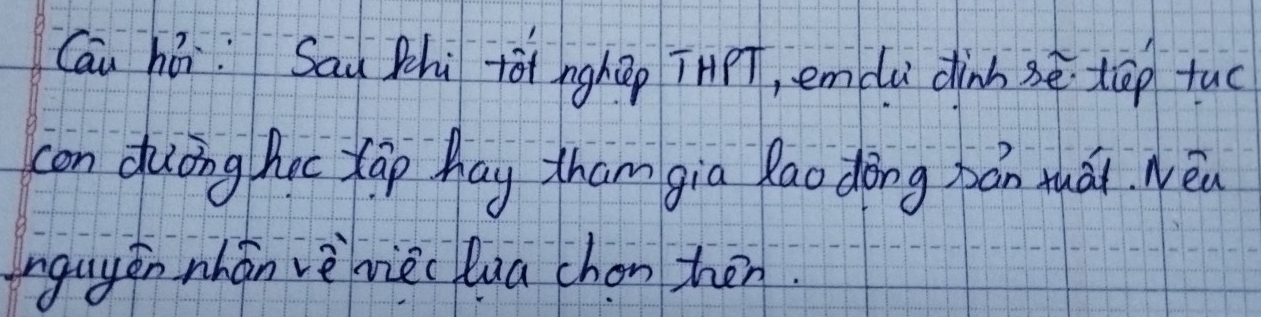 Câu hỏi: Sau khi tốt nghiệp THPT, em dự định sẽ tiếp tục
con đường học tập hay tham gia lao động sản xuất. Nêu
nguyên nhân về việc lựa chọn trên.